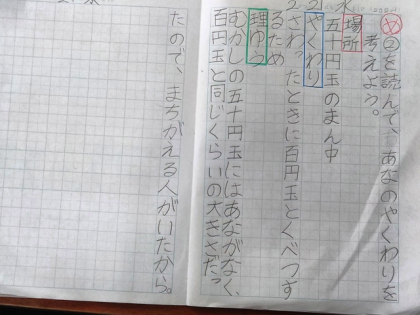 め ②を読んで、あなのやくわりを
考えよう。
場所
五十円玉のまん中
やくわり
さわったときに百円玉とくべつす
るため
理ゆう
むかしの五十円玉にはあながなく、
百円玉と同じくらいの大きさだっ
たので、まちがえる人がいたから。